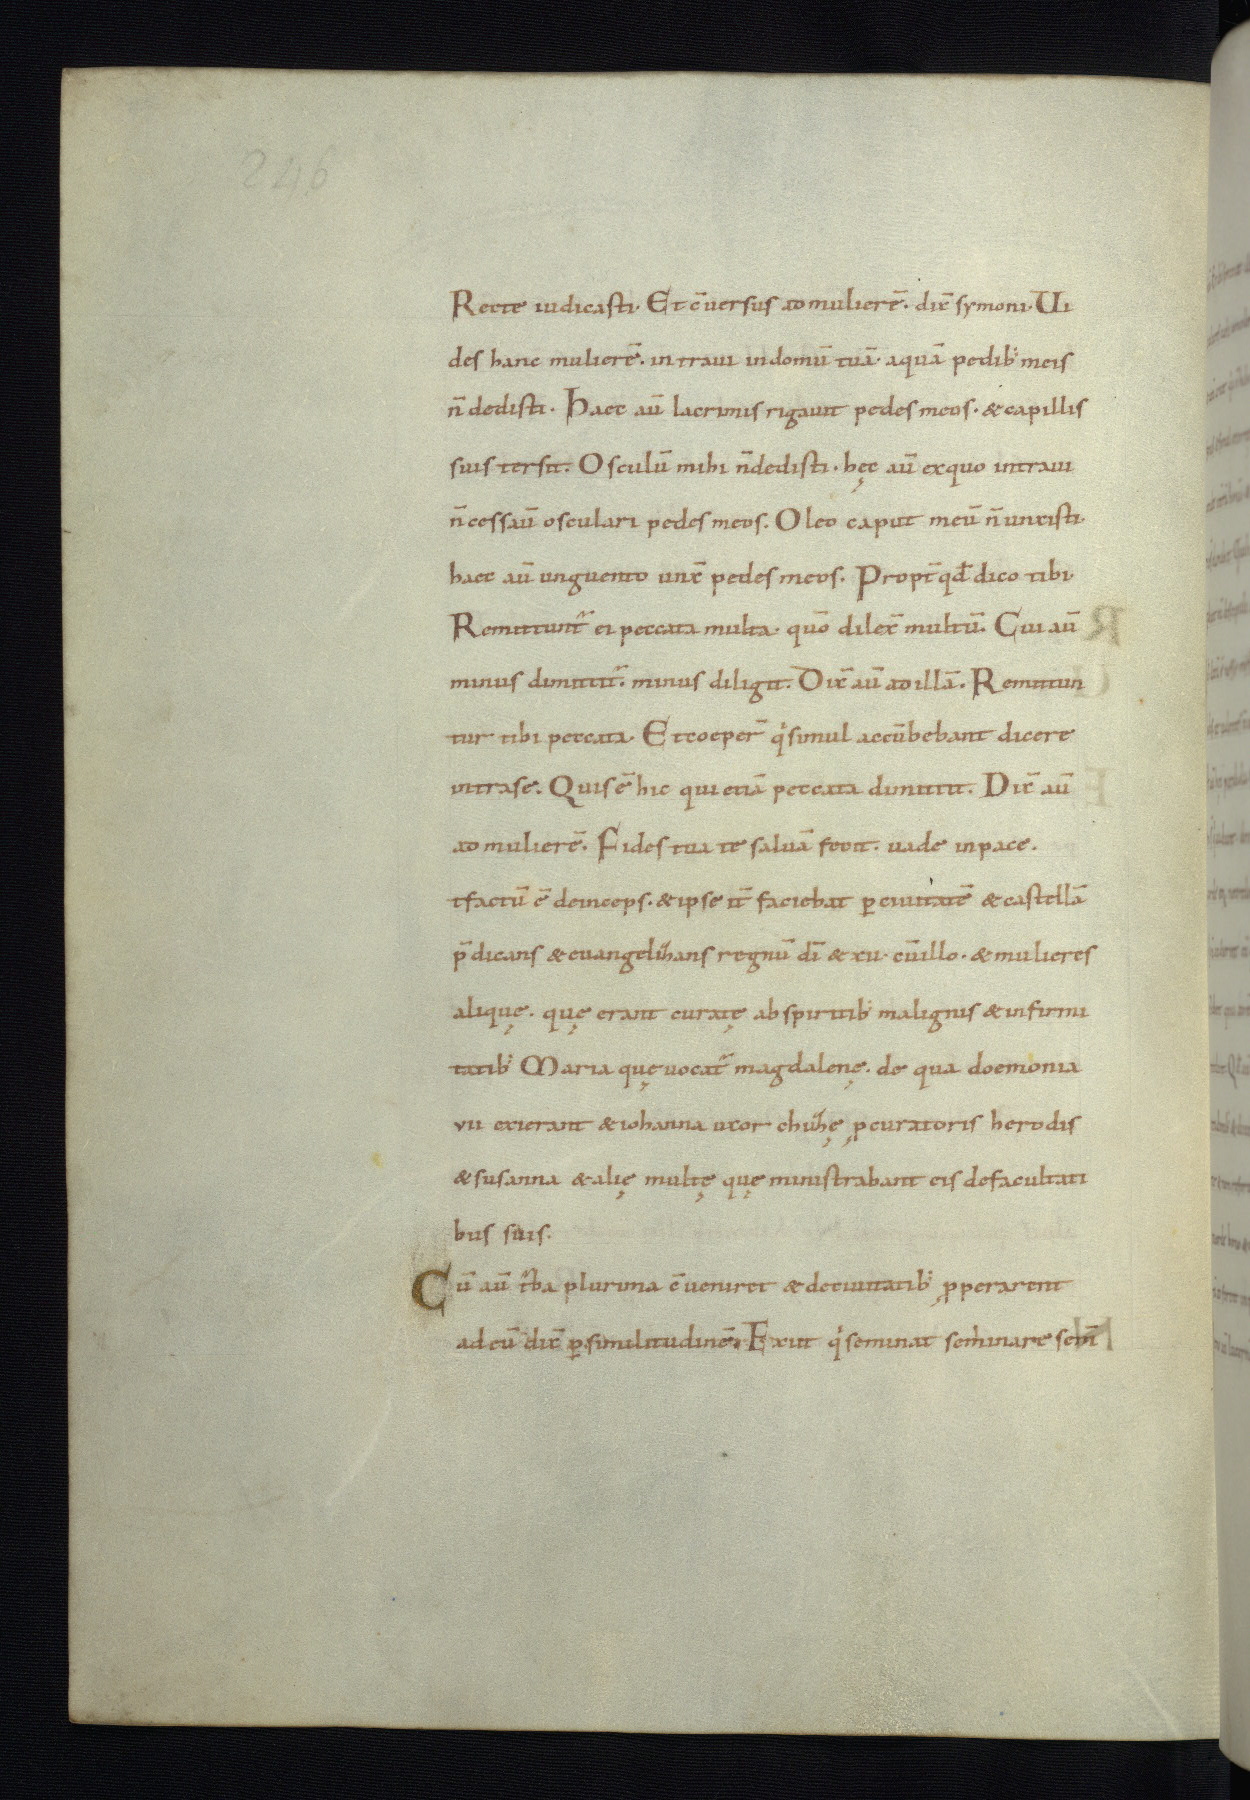 246
Recte iudicasti. Et c̄uersus ad mulierē. dix̄ symoni. Ui
des hanc mulierē. intraui in domū tuā. aquā pedib; meis
n̄ dedisti. Haec aū lacrimis rigauit pedes meos. & capillis
suis tersit. Osculū mihi n̄ dedisti. hęc aū ex quo intraui
n̄ cessau̅ osculari pedes meos. Oleo caput meū n̄ unxisti.
haec aū unguento unx̄ pedes meos. Propt̄ qd̄ dico tibi.
Remittunt᷑ ei peccata multa. quō dilex̄ multū. Cui aū
minus dimittit᷑. minus diligit. Dix̄ aū ad illā. Remittun
tur tibi peccata. Et coeper̄ qͥ simul accūbebant dicere
intra se. Quis ē hic qui etiā peccata dimittit. Dix̄ aū
ad mulierē. Fides tua te saluā fecit. uade in pace.
t factū ē deinceps. & ipse it̄ faciebat ꝑ ciuitatē & castellā
p̄dicans & euangelizans regnū dī & xii. cū illo. & mulieres
alique̜. que̜ erant curate̜ ab spiritib; malignis & infirmi
tatib; Maria que̜ uocat᷑ magdalene̜. de qua doemonia
vii exierant & iohanna uxor chuze̜ ꝓcuratoris herodis
& susanna & alie̜ multe̜ que̜ ministrabant eis de facultati
bus suis.
Cū aū t᷑ba plurima c̄ueniret & de ciuitatib; ꝓperarent
ad eū dix̄ ꝑ similitudinē. Exiit qͥ seminat seminare sem̄